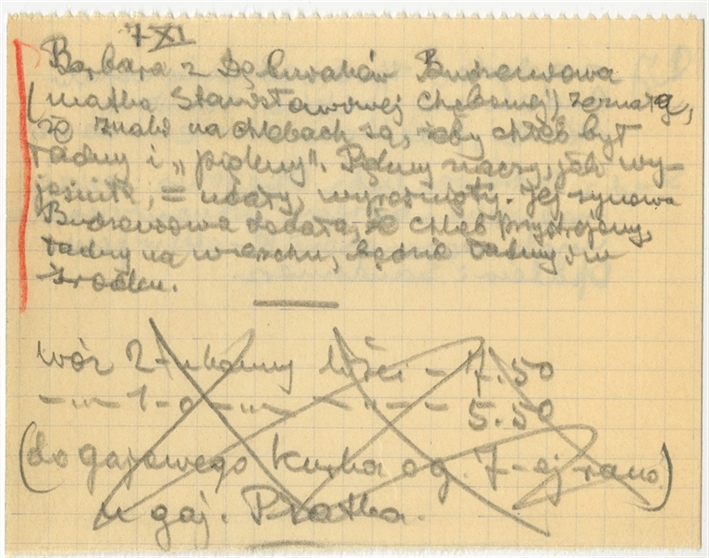 7 XI
Barbara z Dęburaków Budzewiowa
(matka Stanisławowej Chębowej) zeznała,
że znaki na chlebach są, żeby chleb był
ładny i „piękny". Pękny znaczy, jak wy-
jaśniła, = udały, wyrośnięty. Jej synowa
dodała, że chleb przystrojony,
ładny na wierzchu, będzie ładny i w
środku.
wóz 2-konny liści – 7.50
–„– 1-o –„– –„– – 5.50
(do gajowego Kurka o g. 7-ej rano)
u gaj. Płatka.